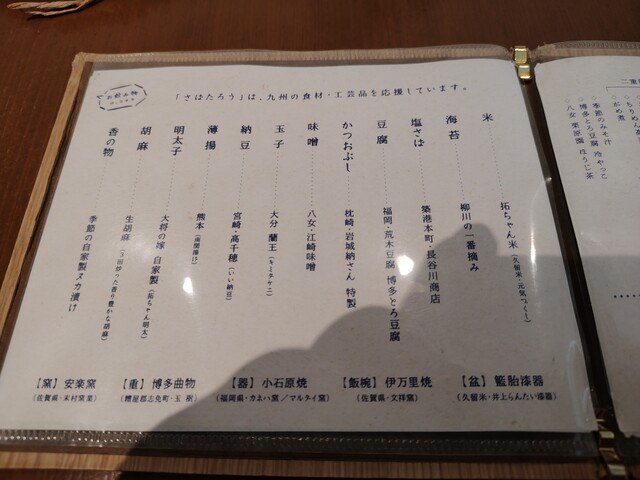 「さばたろう」は、九州の食材・工芸品を応援しています。
米 拓ちゃん米(久留米・元気つくし)
海苔 柳川の一番摘み
塩さば 築港本町・長谷川商店
豆腐 福岡・荒木豆腐 博多とろ豆腐
かつおぶし 枕崎・岩城納さん 特製
味噌 八女・江崎味噌
玉子 大分 蘭王(キミタケニ)
納豆 宮崎・高千穂(いい納豆)
薄揚 熊本(南関揚げ)
明太子 大将の嫁 自家製(拓ちゃん明太)
胡麻 生胡麻(3回炒った香り豊かな胡麻)
香の物 季節の自家製ヌカ漬け
【盆】籃胎漆器
(久留米・井上らんたい漆器)
【飯椀】伊万里焼
(佐賀県・文祥窯)
【器】小石原焼
(福岡県・カネハ窯/マルタイ窯)
【重】博多曲物
(糟屋郡志免町・玉樹)
【窯】安楽窯
(佐賀県・末村窯業)
季節のみそ汁
博多とろ豆腐 冷やっこ
八女 栗原園 ほうじ茶
がめ煮